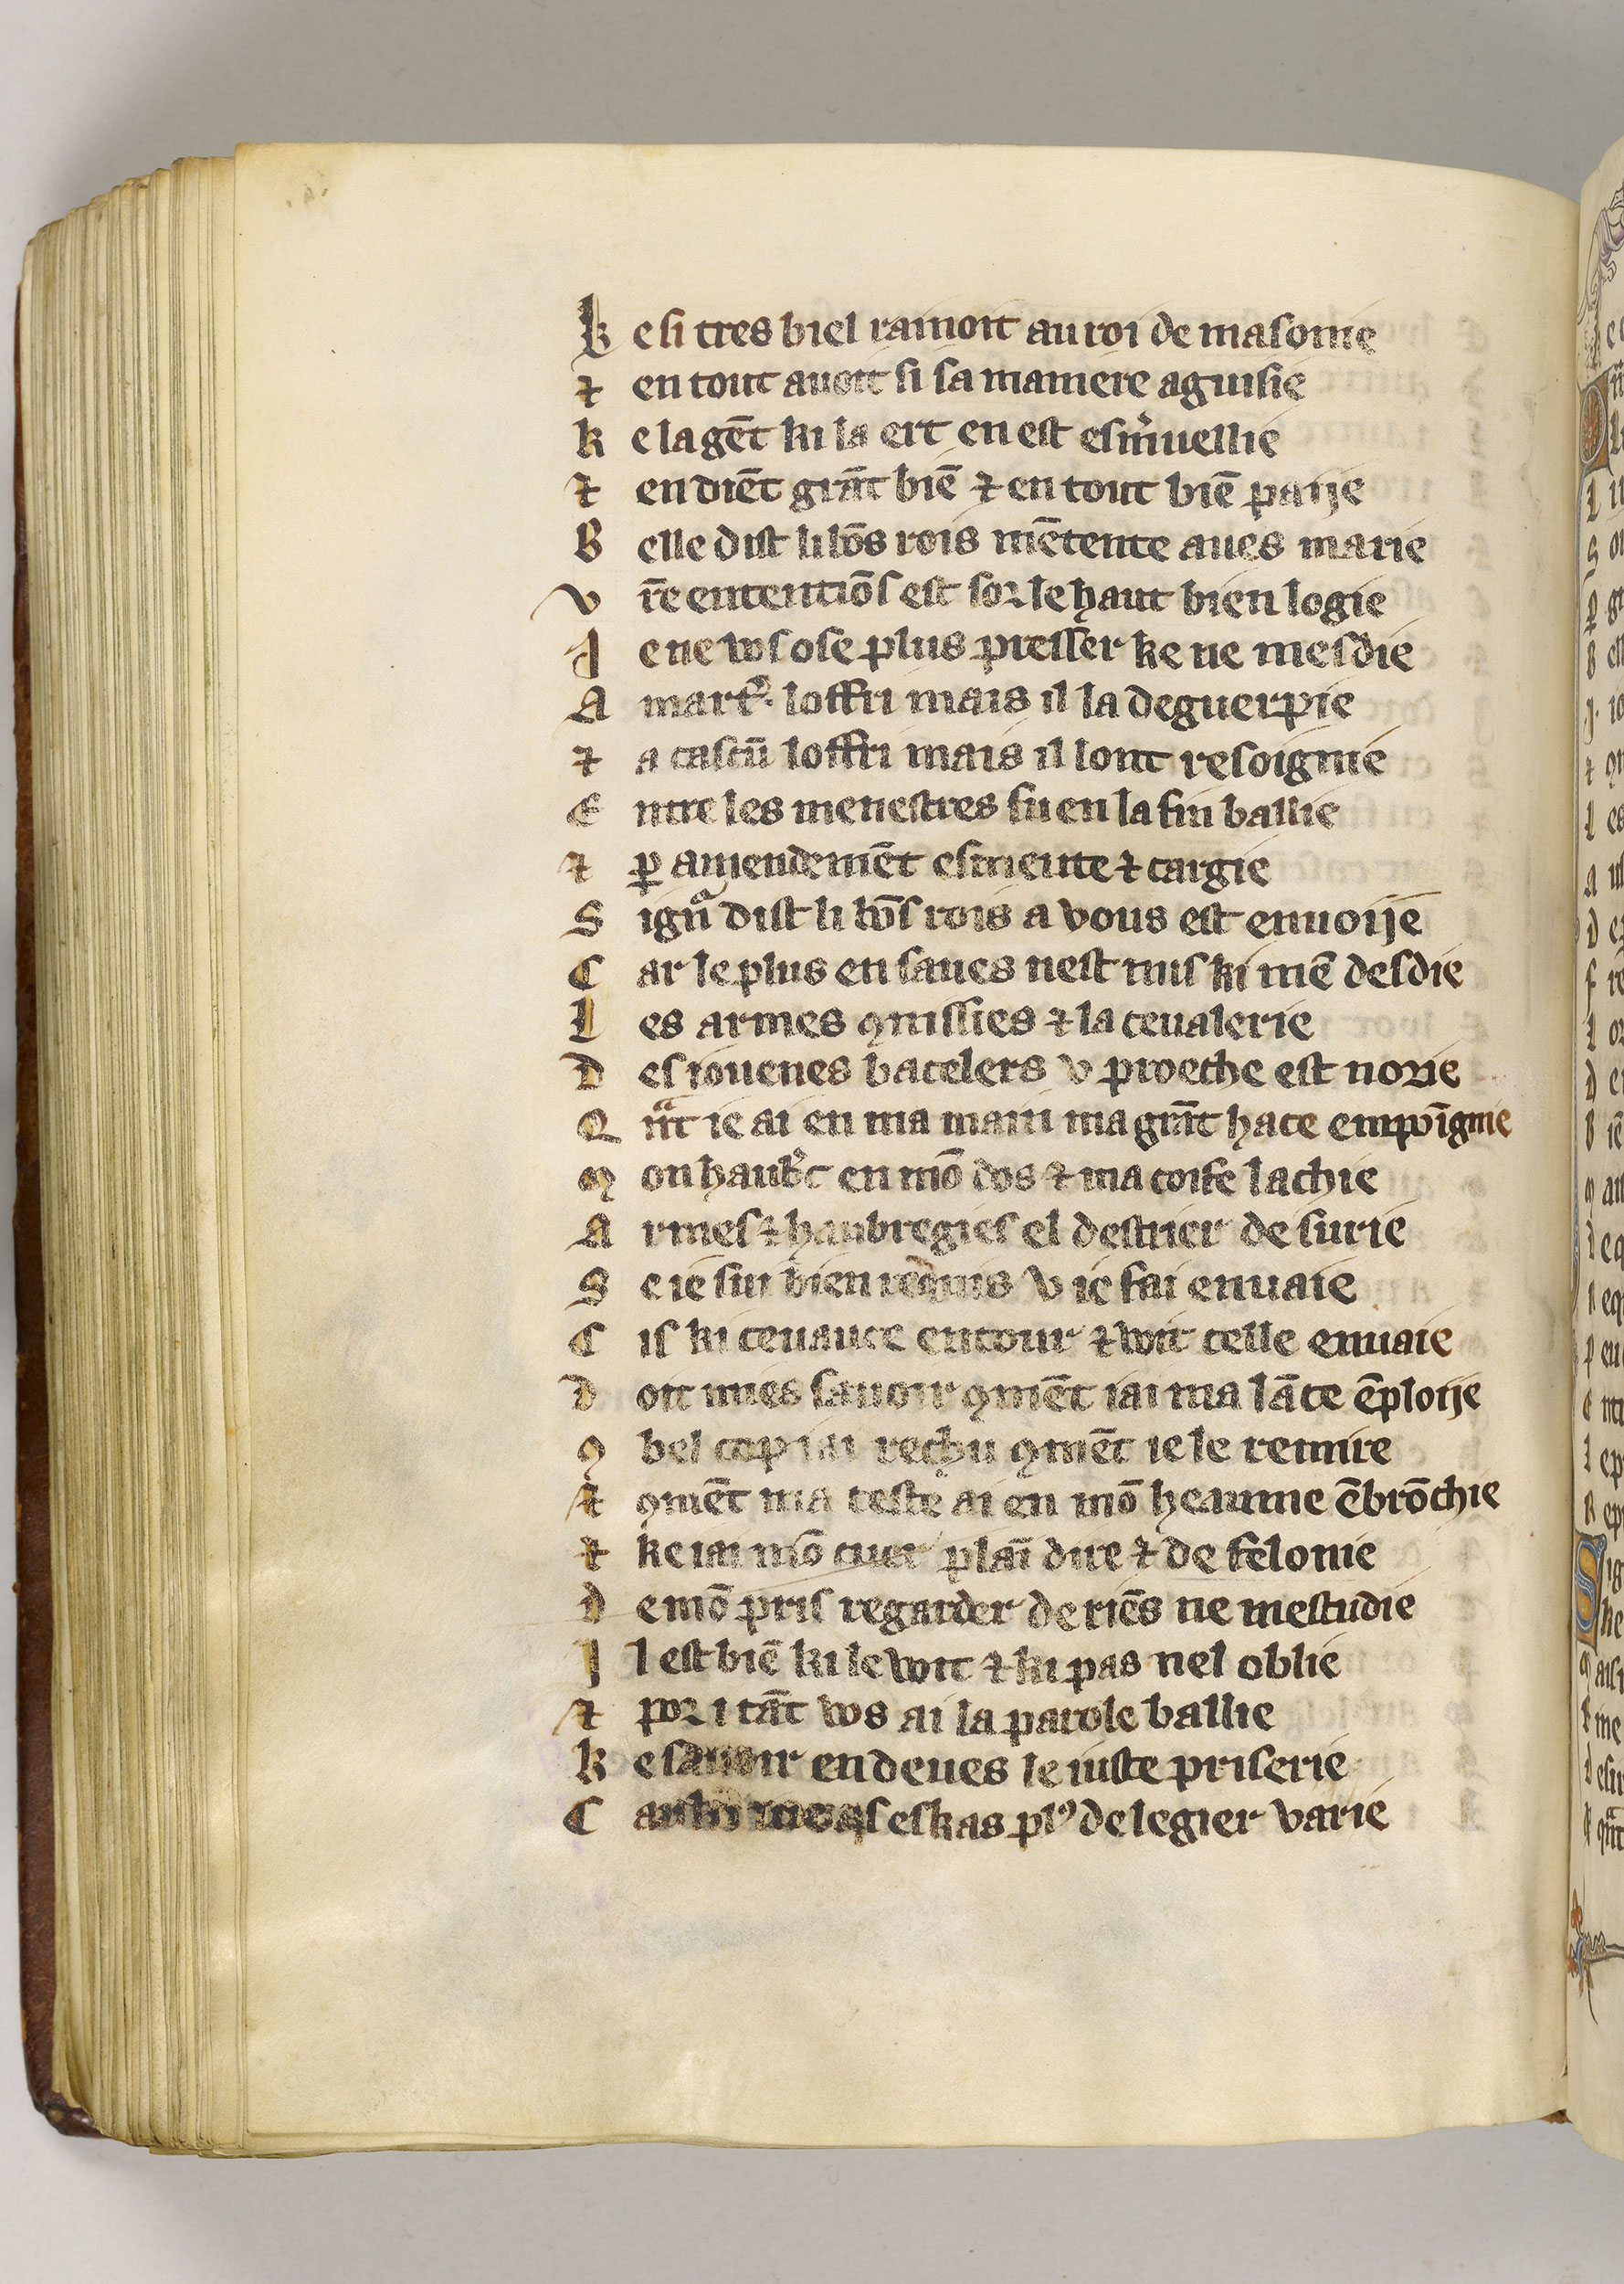 K e si tres biel ramoit au roi de masonie
⁊ en tout auoit si sa maniere aguisie
K e la gēt ki la ert en est esm̾uellie
⁊ en diēt grāt biē ⁊ en tout biē paije
B elle dist li bōs rois mētente aues marie
V r̄e ententiōs est sor le haut bien logie
J e ne vos ose plus presser ke ne mesdie
A mart̾. loffri mais il la deguerpie
⁊ a cascū loffri mais il lont resoignie
E ntre les menestres fu en la fin ballie
⁊ ꝑ amendemēt esmeute ⁊ cargie
S ignᷓ dist li bōs rois a vous est enuoije
C ar le plus en saues nest nus ki mē desdie
L es armes ꝯnissies ⁊ la ceualerie
D es iouenes bacelers v proeche est norie
Q nᷓt ie ai en ma main ma grāt hace empoīgnie
M on haub̾c en mō dos ⁊ ma coife lachie
A rmes ⁊ haubregies el destrier de surie
S e ie sui bien requis v ie fai enuaie
C is ki ceuauce entour ⁊ voit celle enuaie
D oit mies sauoir ꝯmēt iai ma lāce ēploije
Q bel cop iai rechu ꝯmēt ie le remire
⁊ ꝯmēt ma teste ai en mō heaume ēbrōchie
⁊ ke iai mō cuer plaī dire ⁊ de felonie
D e mō pris regarder de riēs ne mestudie
J l est biē ki le voit ⁊ ki pas nel oblie
⁊ por i tāt vos ai la parole ballie
K e sauoir en deues le iuste priserie
C ar eskas plꝰ de legier varie